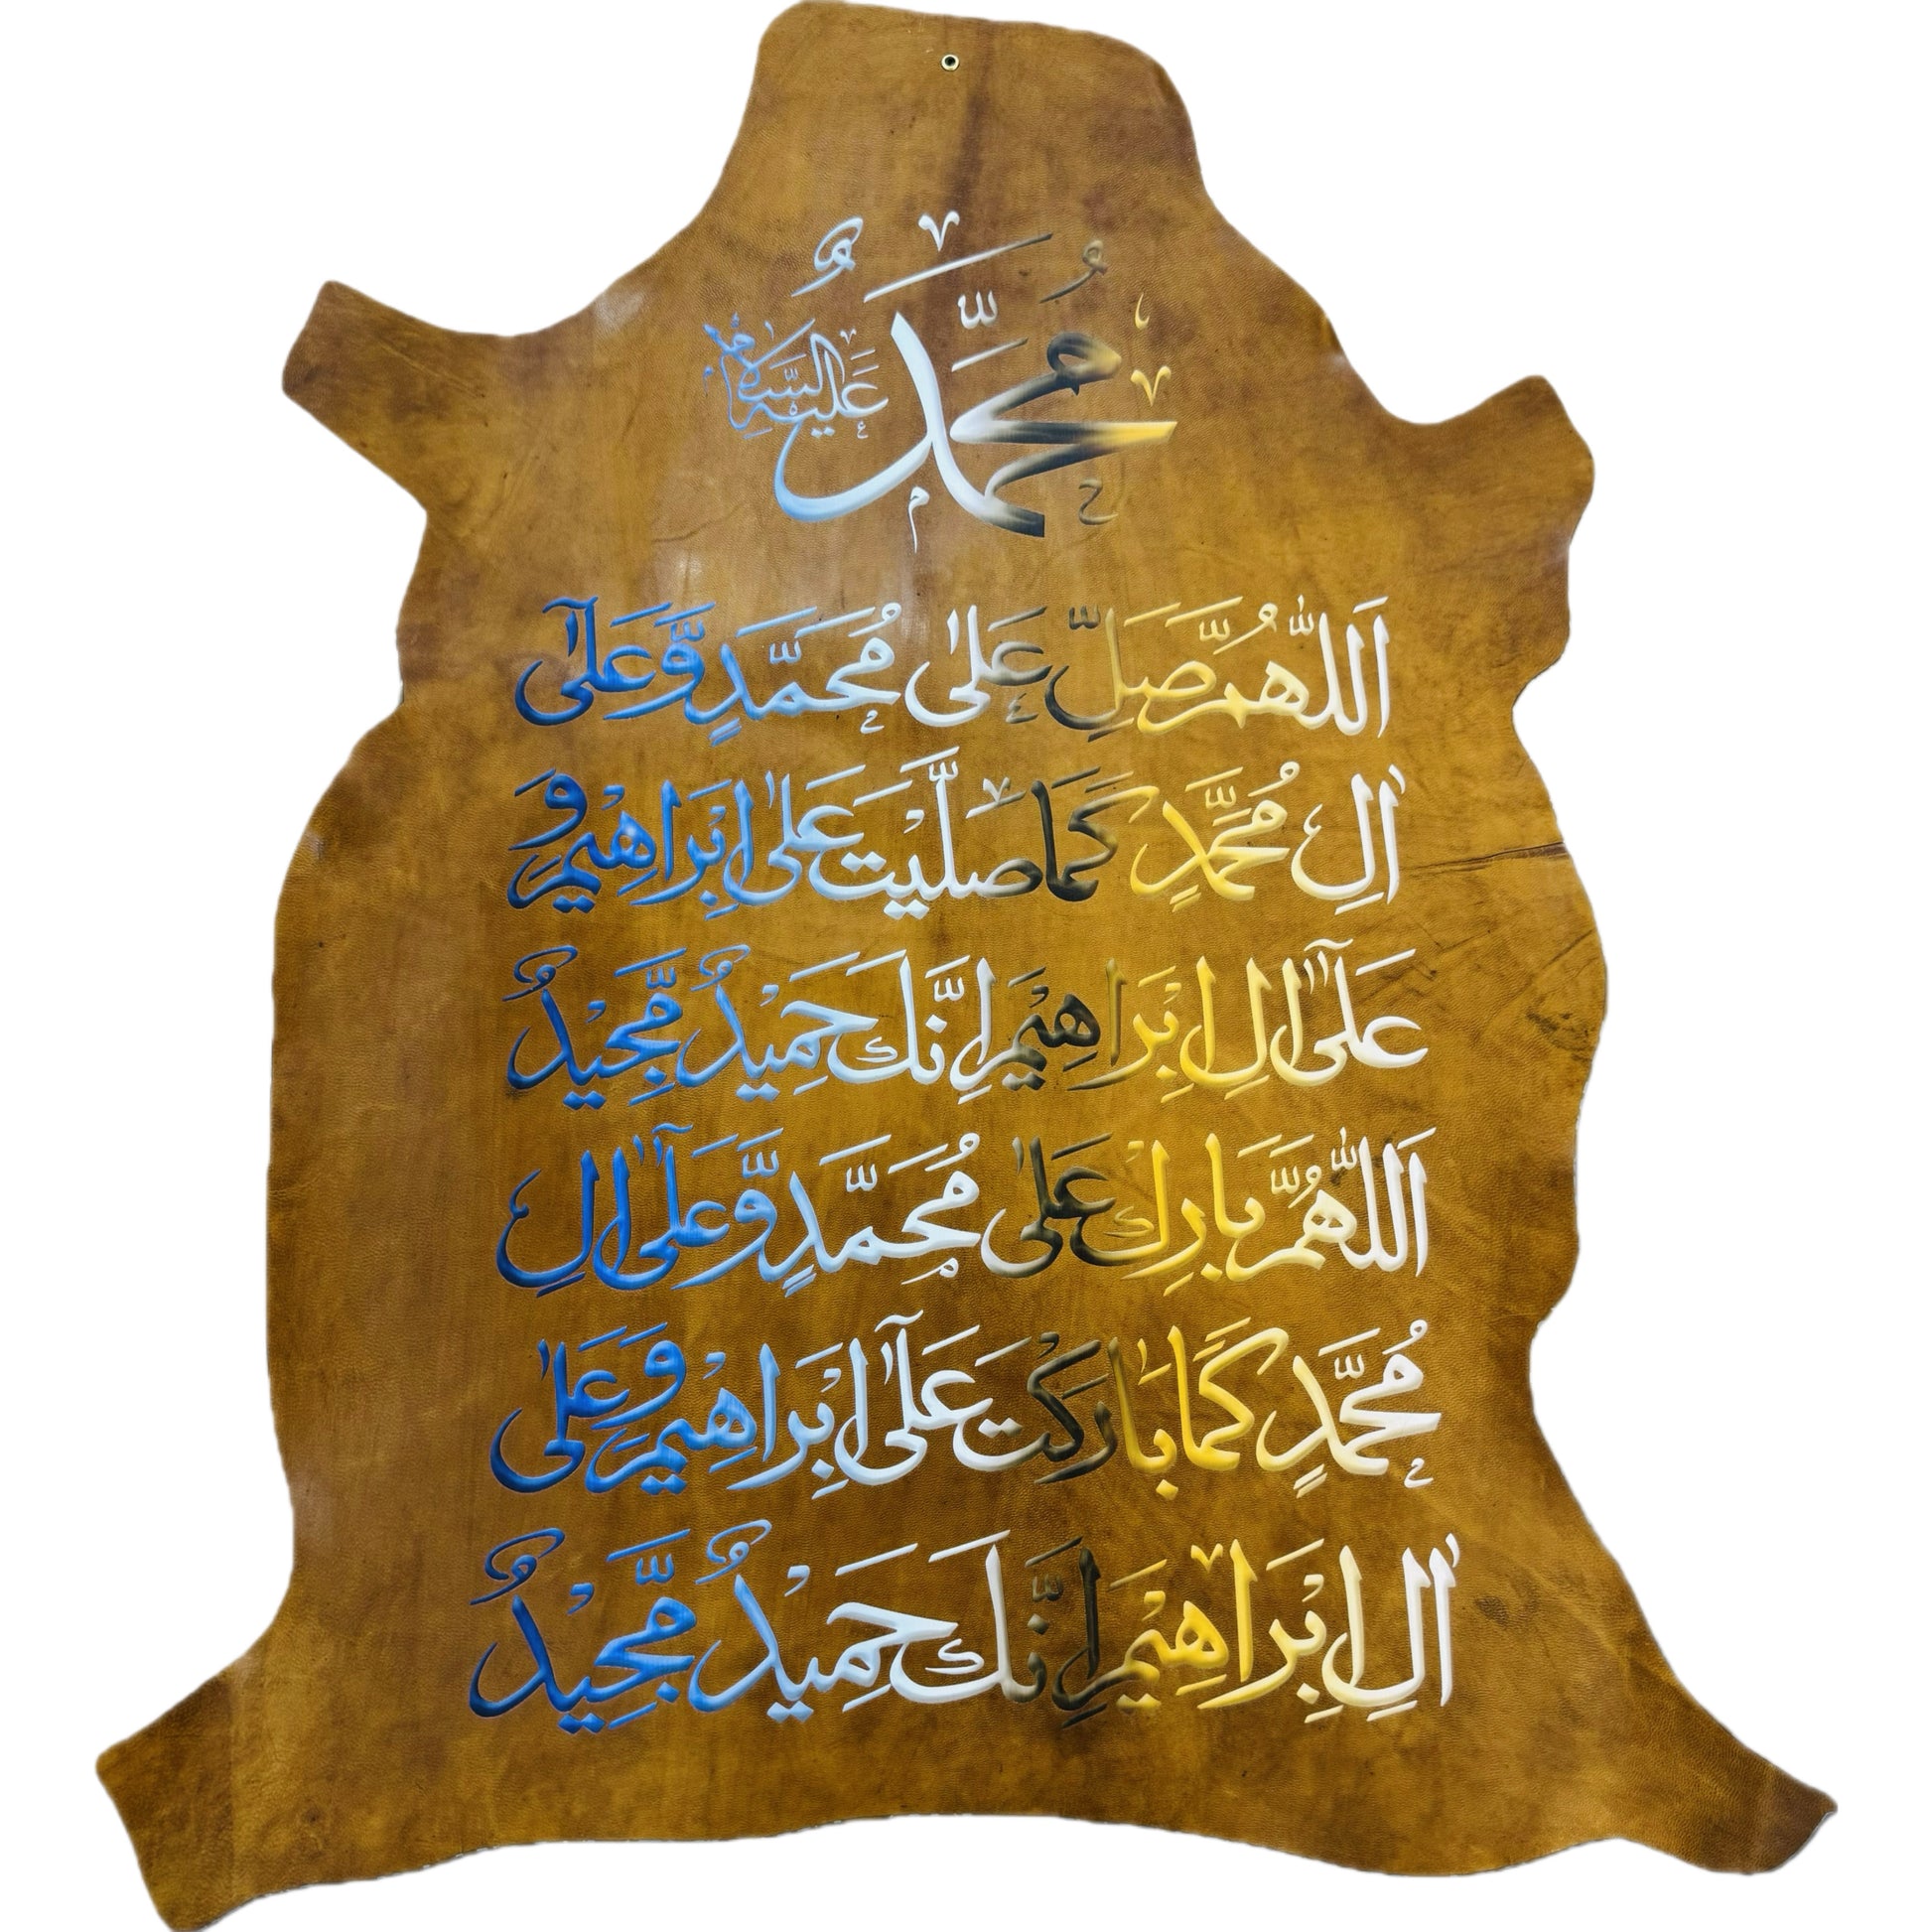 مُحَمَّدٌ عَلَيْهِ السَّلَامُ
اَللّٰهُمَّ صَلِّ عَلٰى مُحَمَّدٍ وَّعَلٰٓى
اٰلِ مُحَمَّدٍ كَمَا صَلَّيْتَ عَلٰى اِبْرَاهِيْمَ وَ
عَلٰٓى اٰلِ اِبْرَاهِيْمَ اِنَّكَ حَمِيْدٌ مَّجِيْدٌ
اَللّٰهُمَّ بَارِكْ عَلٰى مُحَمَّدٍ وَّعَلٰٓى اٰلِ
مُحَمَّدٍ كَمَا بَارَكْتَ عَلٰٓى اِبْرَاهِيْمَ وَعَلٰى
اٰلِ اِبْرَاهِيْمَ اِنَّكَ حَمِيْدٌ مَّجِيْدٌ